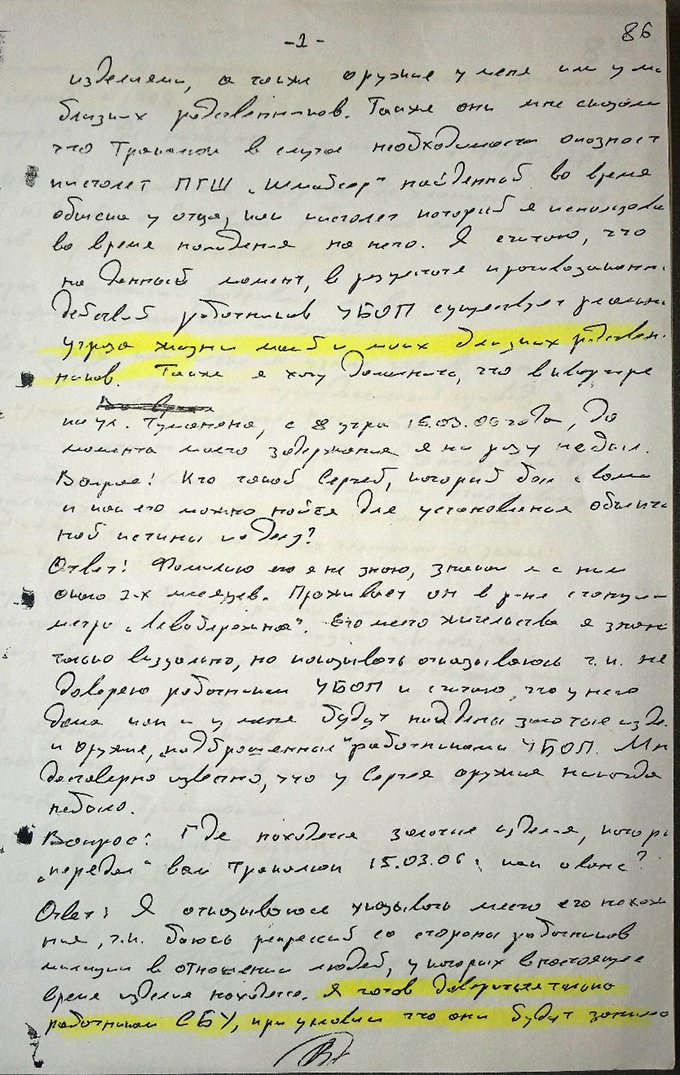 -1-
86
изделиями, а также оружие у меня или у мо
близких родственников. Также они мне сказали
что Трапалюк в случае необходимости опознает
пистолет ПГШ „Шмайсер" найденный во время
обыска у отца, как пистолет который я использова
во время нападения на него. Я считаю, что
на данный момент, в результате провокационн
действий работников УБОП существует реальн
угроза жизни моей и моих близких родствен-
ников. Также я хочу дополнить, что в квартире
по ул. Туманяна, с 8 утра 15.03.06 года, до
момента моего задержания я ни разу не был.
Вопрос: Кто такой Сергей, который был с вами
и как его можно найти для установления объектив
ной истины по делу?
Ответ: Фамилию его я не знаю, знаком я с ним
около 2-х месяцев. Проживает он в р-не станции
метро „Левобережная". Его место жительства я знаю
только визуально, но показывать отказываюсь т.к. не
доверяю работникам УБОП и считаю, что у него
дома как и у меня будут найдены золотые изде
и оружие, „подброшенные" работниками УБОП. Мн
достоверно известно, что у Сергея оружия никогда
небыло.
Вопрос: Где находятся золотые изделия, котор
„передал" вам Трапалюк 15.03.06г как аванс?
Ответ: Я отказываюсь указывать место его нахож
ния, т.к. боюсь репрессий со стороны работников
милиции в отношении людей, у которых в настоящее
время изделия находятся. Я готов довериться только
работникам СБУ, при условии что они будут занима